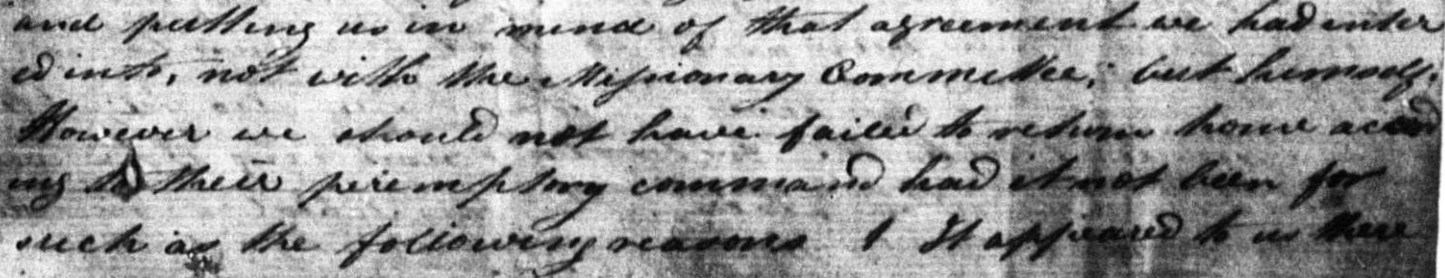 and putting us in mind of that agreement we had enter
ed into, not with the Missionary Committee; but himself.
However we should not have failed to return home accord
ing to their peremptory command had it not been for
such as the following reasons 1 It appeared to us there